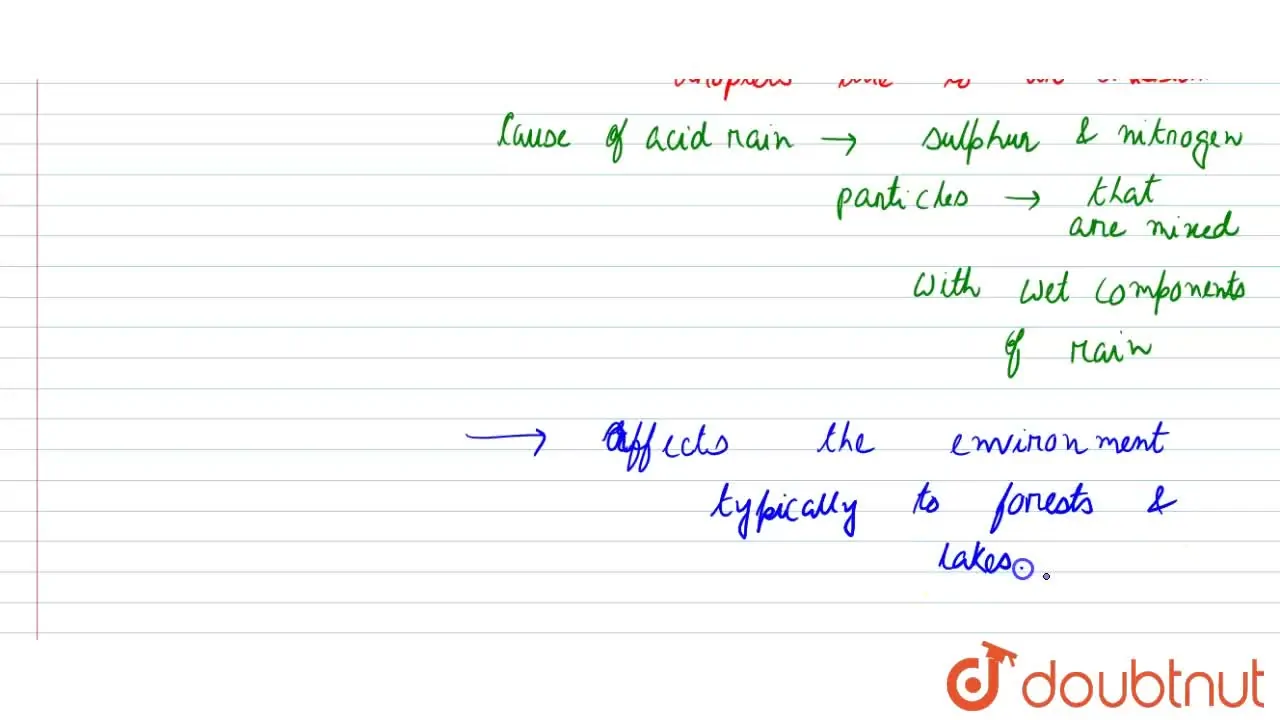 to
Cause of acid rain → sulphur & nitrogen
particles → that
are mixed
with wet components
of rain
→ Affects the environment
typically to forests &
lakes.
doubtnut